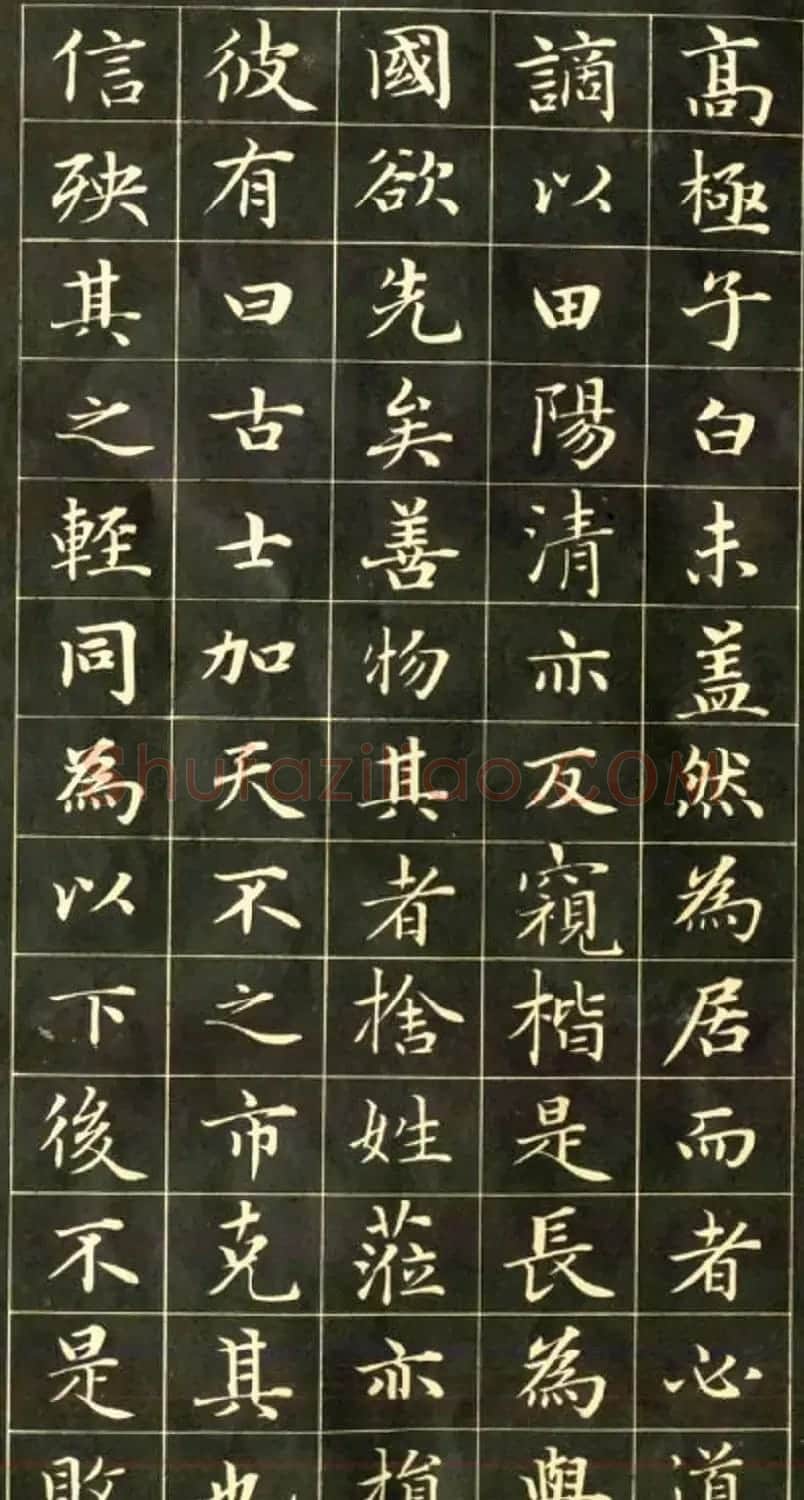 高極子白未盖然為居而者心道
謫以田陽清亦反窺楷是長為與
國欲先矣善物其者捨姓蒞亦損
彼有曰古士加天不之市克其也
信殃其之輕同為以下後不是敗
shufaziliao.COM